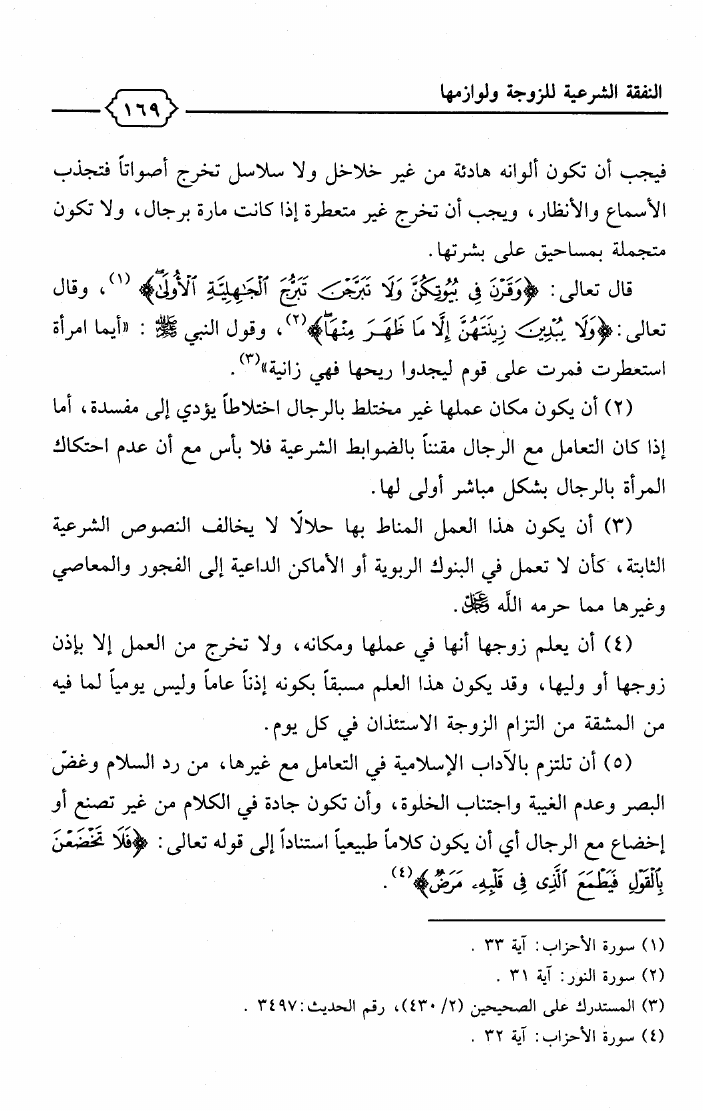 النفقة الشرعية للزوجة ولوازمها
١٦٩
فيجب أن تكون ألوانه هادئة من غير خلاخل ولا سلاسل تخرج أصواتاً فتجذب
الأسماع والأنظار، ويجب أن تخرج غير متعطرة إذا كانت مارة برجال، ولا تكون
متجملة بمساحيق على بشرتها.
قال تعالى: ﴿وَقَرْنَ فِي بُيُوتِكُنَّ وَلَا تَبَرَّجْنَ تَبَرُّجَ ٱلْجَٰهِلِيَّةِ ٱلْأُولَىٰۖ﴾(١)، وقال
تعالى: ﴿وَلَا يُبْدِينَ زِينَتَهُنَّ إِلَّا مَا ظَهَرَ مِنْهَاۖ﴾(٢)، وقول النبي ﷺ: «أيما امرأة
استعطرت فمرت على قوم ليجدوا ريحها فهي زانية»(٣).
(٢) أن يكون مكان عملها غير مختلط بالرجال اختلاطاً يؤدي إلى مفسدة، أما
إذا كان التعامل مع الرجال مقنناً بالضوابط الشرعية فلا بأس مع أن عدم احتكاك
المرأة بالرجال بشكل مباشر أولى لها.
(٣) أن يكون هذا العمل المناط بها حلالًا لا يخالف النصوص الشرعية
الثابتة، كأن لا تعمل في البنوك الربوية أو الأماكن الداعية إلى الفجور والمعاصي
وغيرها مما حرمه الله ﷻ.
(٤) أن يعلم زوجها أنها في عملها ومكانه، ولا تخرج من العمل إلا بإذن
زوجها أو وليها، وقد يكون هذا العلم مسبقاً بكونه إذناً عاماً وليس يومياً لما فيه
من المشقة من التزام الزوجة الاستئذان في كل يوم.
(٥) أن تلتزم بالآداب الإسلامية في التعامل مع غيرها، من رد السلام وغضّ
البصر وعدم الغيبة واجتناب الخلوة، وأن تكون جادة في الكلام من غير تصنع أو
إخضاع مع الرجال أي أن يكون كلاماً طبيعياً استناداً إلى قوله تعالى: ﴿فَلَا تَخْضَعْنَ
بِٱلْقَوْلِ فَيَطْمَعَ ٱلَّذِى فِى قَلْبِهِۦ مَرَضٌ﴾(٤).
(١) سورة الأحزاب: آية ٣٣ .
(٢) سورة النور: آية ٣١ .
(٣) المستدرك على الصحيحين (٢/ ٤٣٠)، رقم الحديث: ٣٤٩٧ .
(٤) سورة الأحزاب: آية ٣٢ .